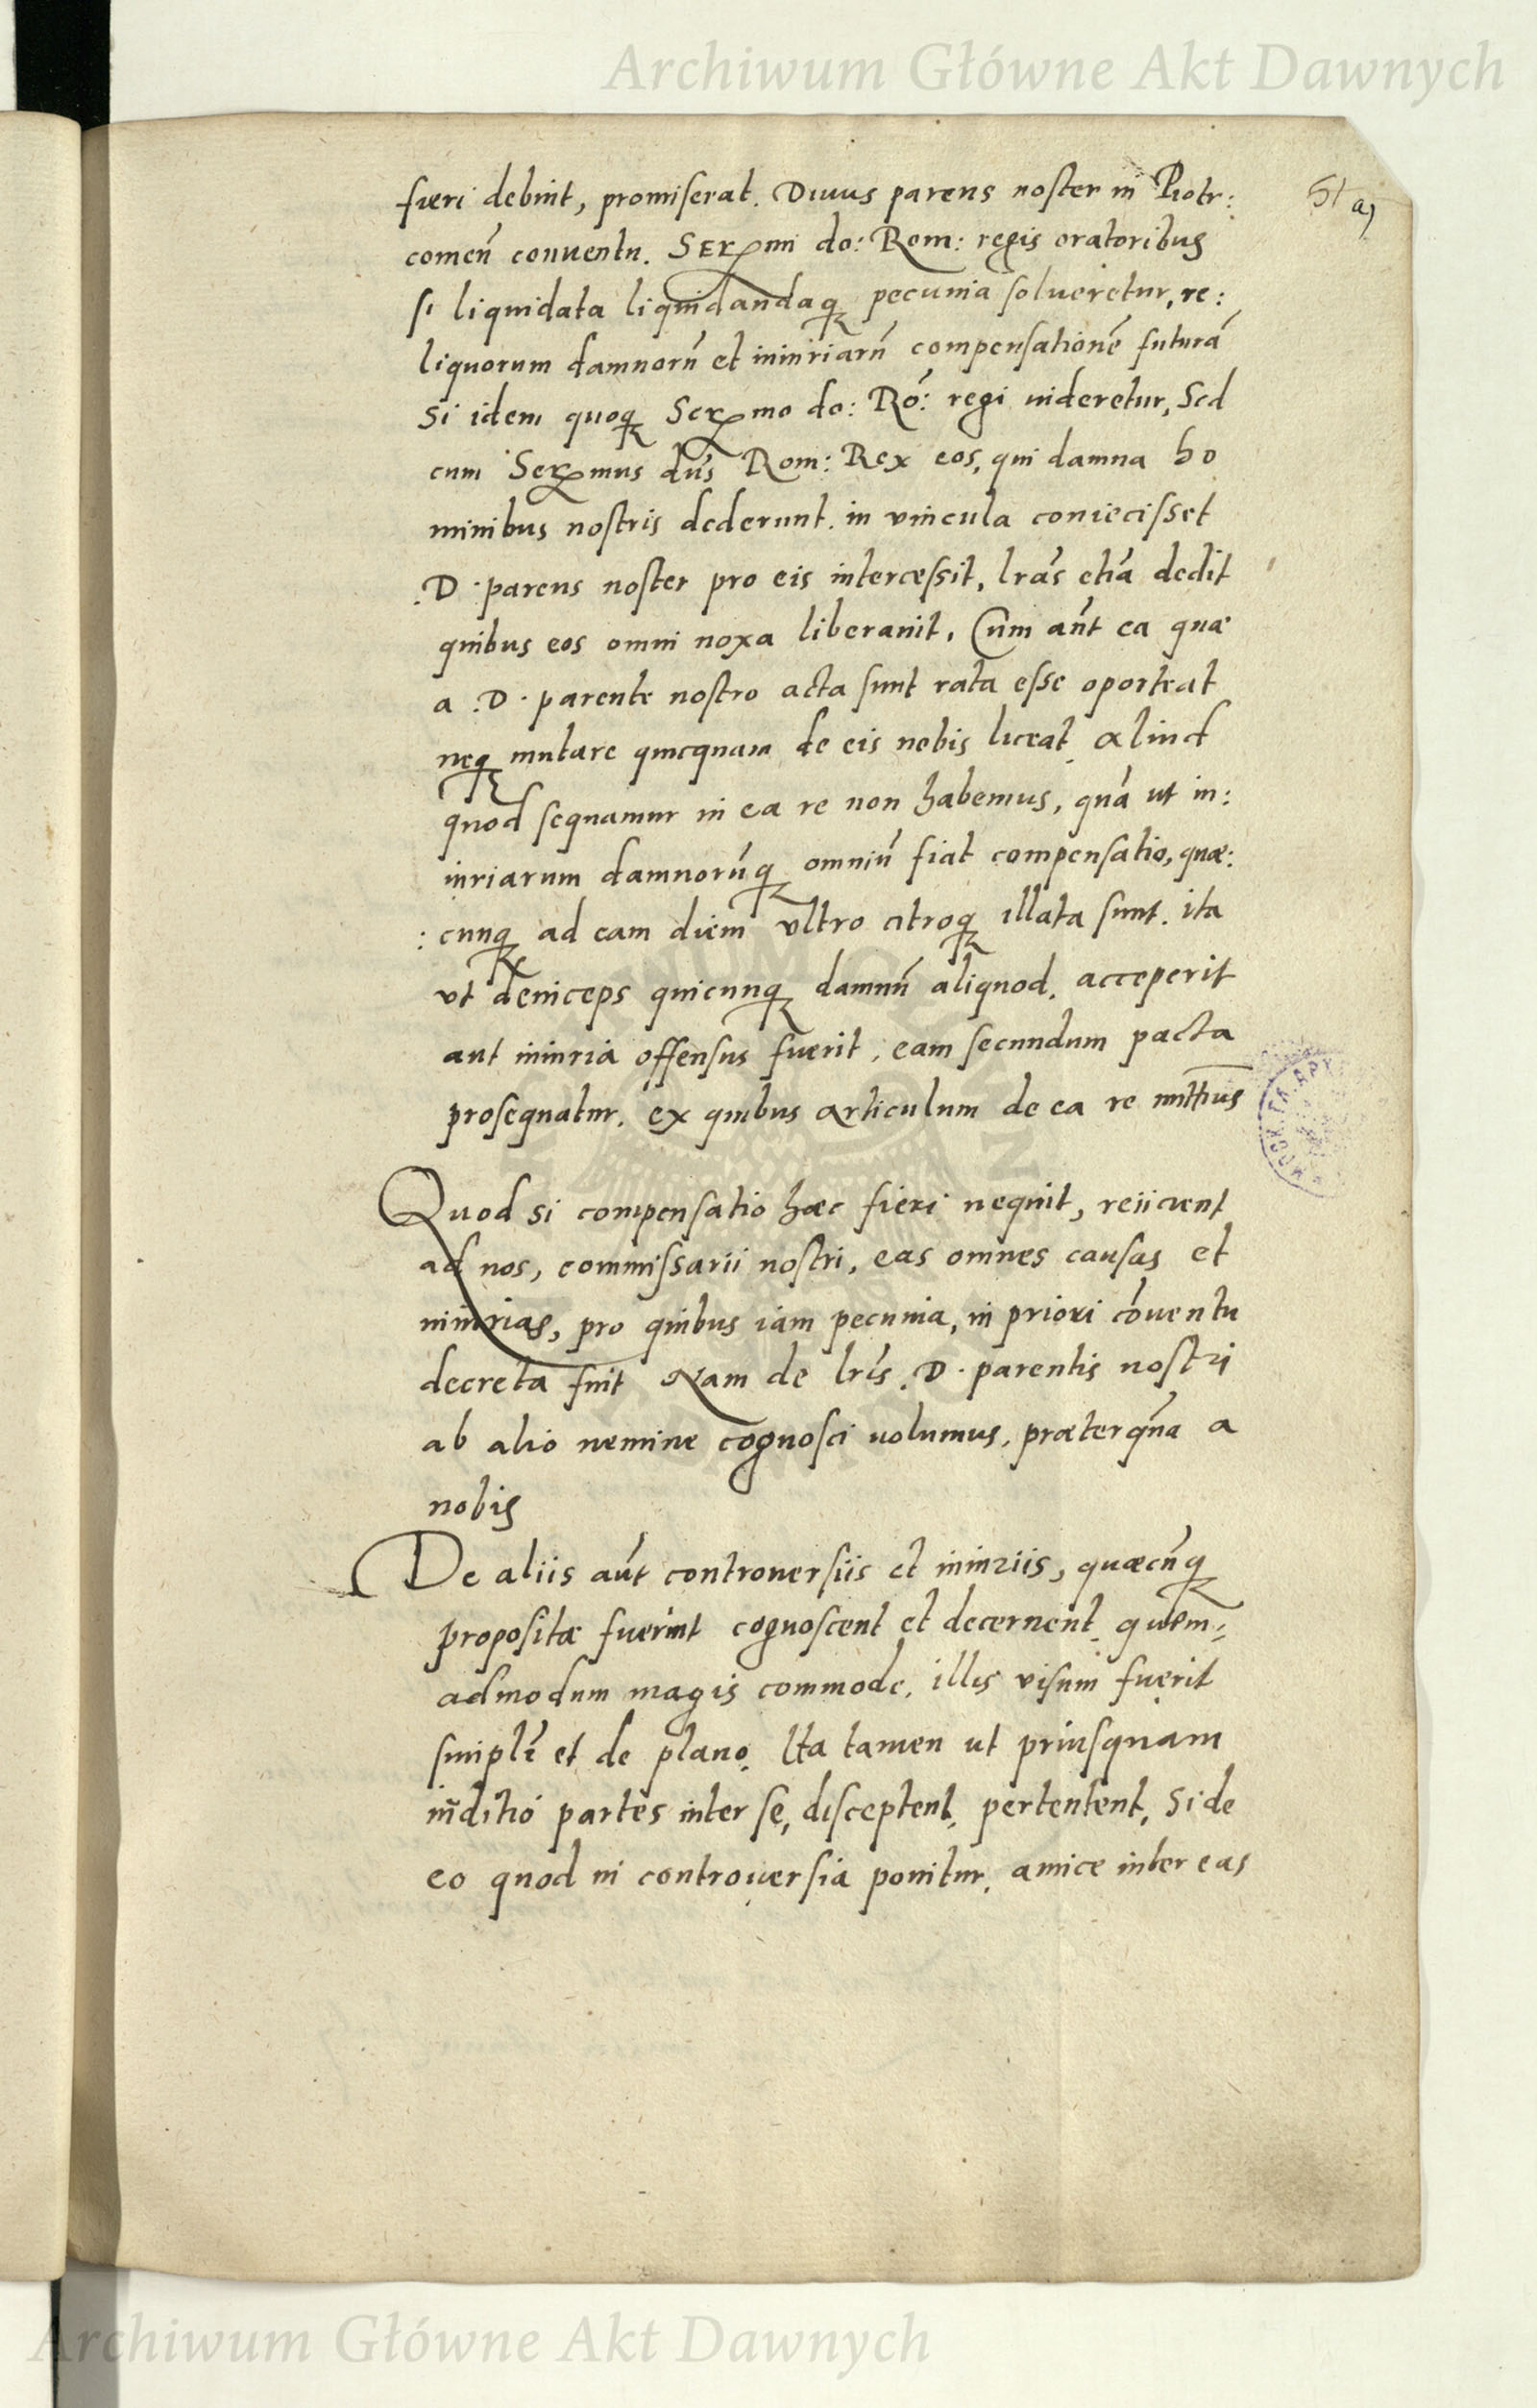 Archiwum Główne Akt Dawnych
51 a)
fieri debuit, promiserat. Diuus parens noster in Piotr:
comeñ conuentu. Sermi do: Rom: regis oratoribus
si liquidata liquidandaq; pecunia solueretur, re:
liquorum damnorū et iniuriarū compensationē futurā
si idem quoq; Sermo do: Rō: regi uideretur, Sed
cum Sermus dūs Rom: Rex eos, qui damna ho
minibus nostris dederunt. in vincula coniecisset
.D. parens noster pro eis intercessit, lrās etiā dedit
quibus eos omni noxa liberauit, Cum aūt ea quæ
a .D. parente nostro acta sunt rata esse oporteat
neq; mutare quicquam de eis nobis liceat, aliud
quod sequamur in ea re non habemus, quā ut in:
iuriarum damnorūq; omniū fiat compensatio, quæ:
:cunq; ad eam diem vltro citroq; illata sunt. ita
vt deinceps quicunq; damnū aliquod. acceperit
aut iniuria offensus fuerit, eam secundum pacta
prosequatur. ex quibus articulum de ea re mittimus
Quod si compensatio hæc fieri nequit, reiicient
ad nos, commissarii nostri, eas omnes causas et
iniurias, pro quibus iam pecunia, in priori cōuentu
decreta fuit Nam de lrīs .D. parentis nostri
ab alio nemine cognosci uolumus, præterquā a
nobis
De aliis aūt controuersiis et iniuriis, quæcūq;
propositæ fuerint cognoscent et decernent, quem=
admodum magis commode, illis visum fuerit
simplr̄ et de plano. Ita tamen ut priusquam
iūditio partes inter se, disceptent, pertentent, Si de
eo quod in controuersia ponitur, amice inter eas
Archiwum Główne Akt Dawnych